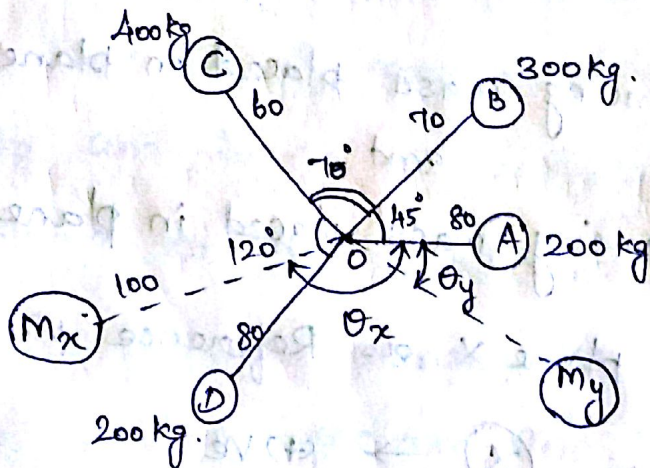 400kg
C
60
300kg.
B
70
70°
45°
80
A
200kg
O
120°
100
Mx
θx
θy
80
D
200kg.
My